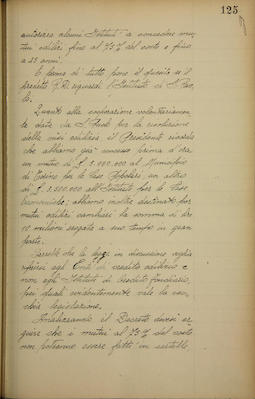 125
autorizza alcuni Istituti a concedere mu-
tui edilizi fino al 75% del costo e fino
a 35 anni.
E fermo di tutto
predetto R.D. riguardi l'Istituto di S. Pao-
lo.
Quanto alla cooperazione volontariamen-
te data da S. Paolo per la risoluzione
della crisi edilizia il Presidente ricorda
che abbiamo già concesso prima d'ora
un mutuo di £ 5.000.000 al Municipio
di Torino per le Case Popolari, un altro
di £ 5.000.000 all'Istituto per le Case
Economiche; abbiamo inoltre destinato per
mutui edilizi cambiari la somma di di-
10 milioni erogata a suo tempo in gran
parte.
Sarebbe che la legge in discussione voglia
riferirsi agli Enti di credito edilizio e
non agli Istituti di Credito Fondiario,
pei quali evidentemente vale la vec-
chia legislazione.
Analizzando il Decreto devesi ar-
guire che i mutui al 75% del costo
non potranno essere fatti in cartelle